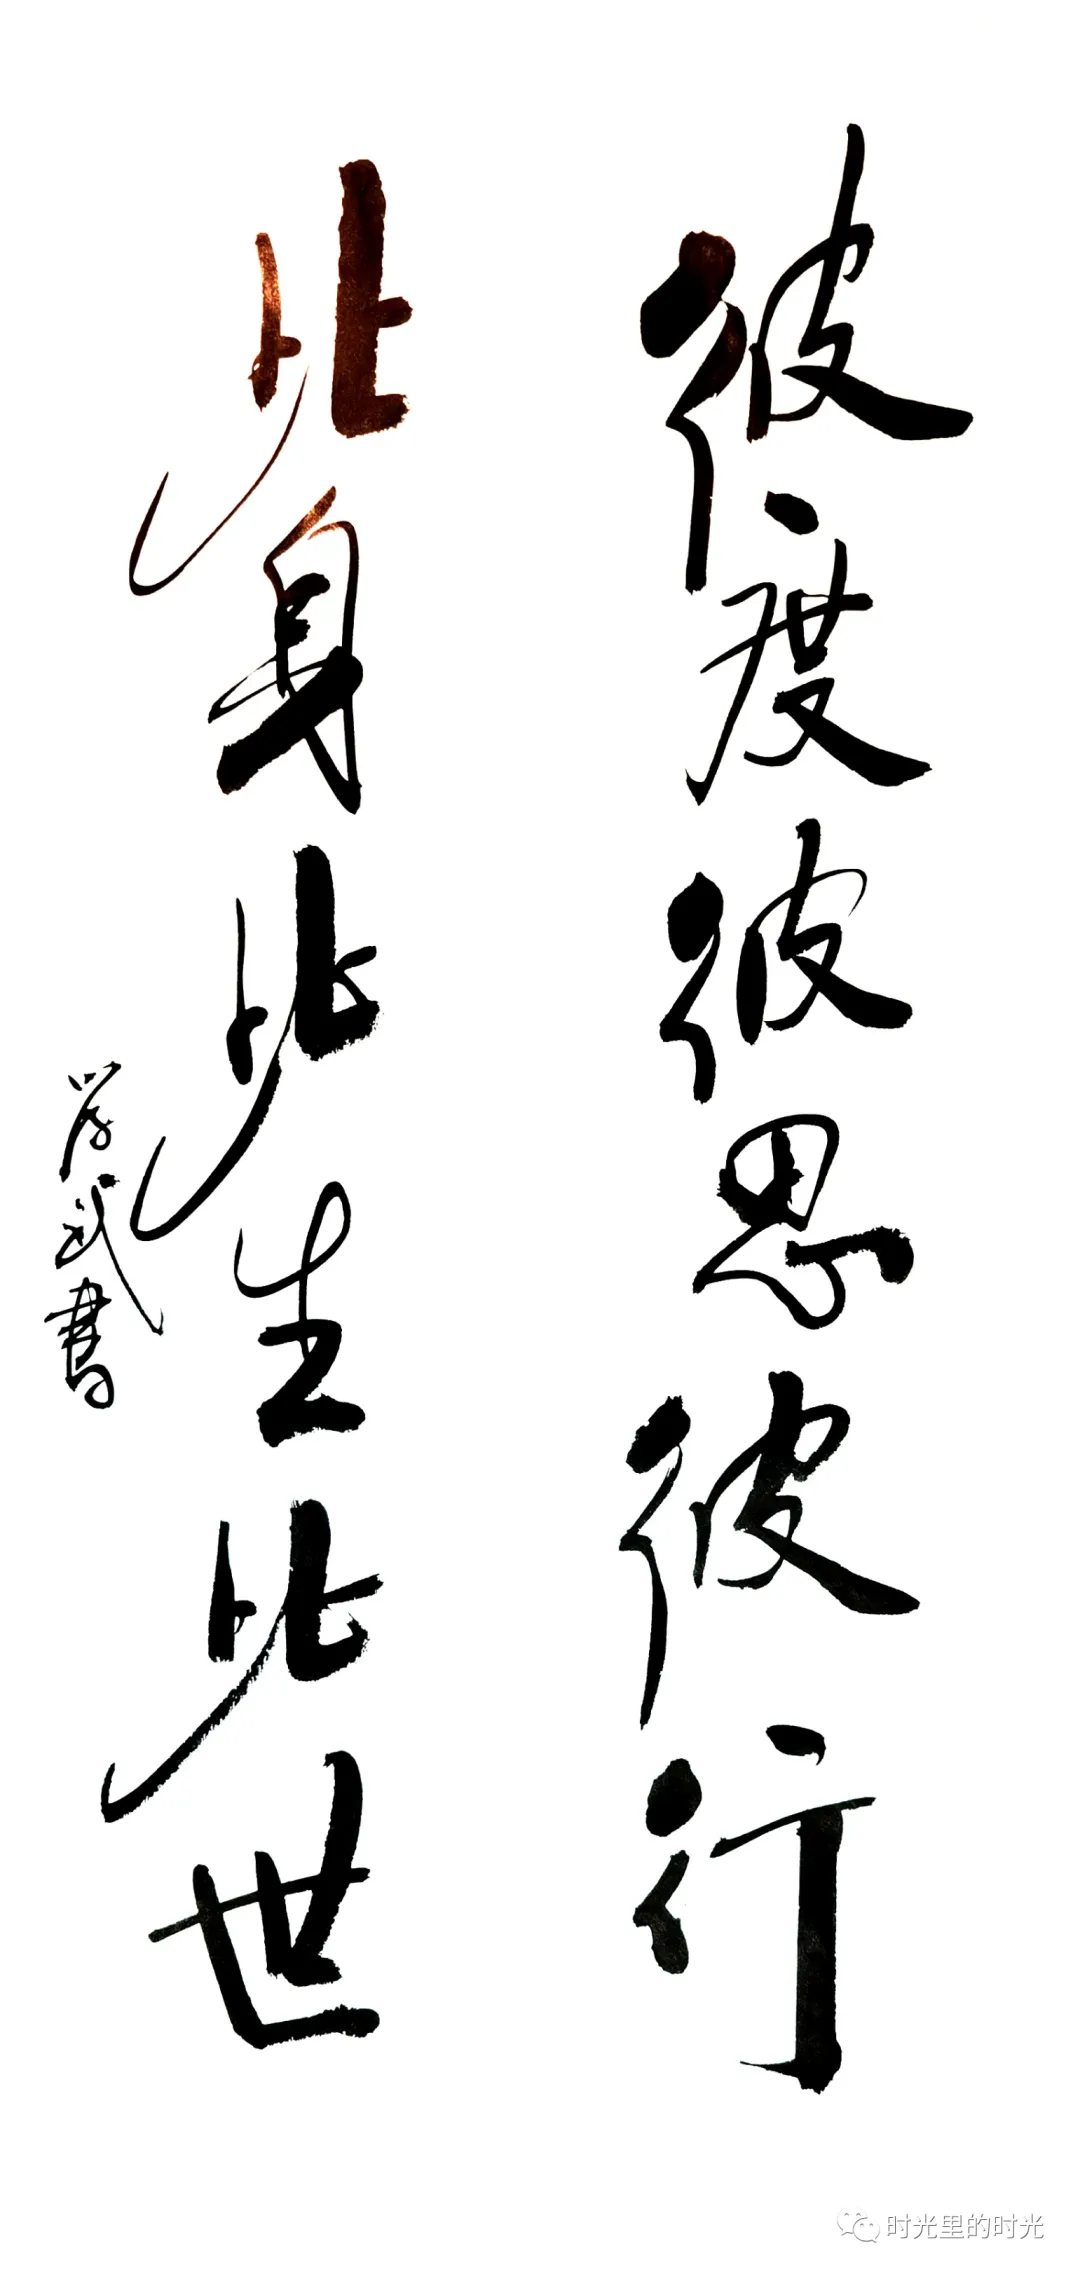 彼度彼思彼行
此身此生此世
学武書
时光里的时光